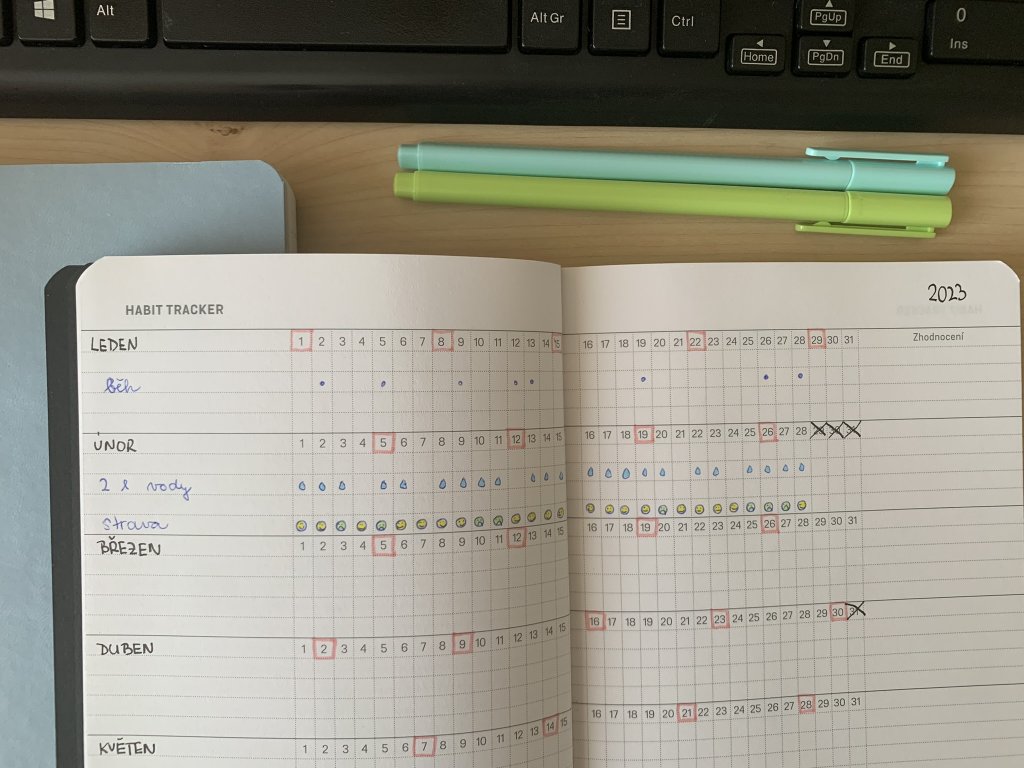 Alt
Alt Gr
Ctrl
PgUp
0
Home
PgDn
End
Ins
2023
HABIT TRACKER
LEDEN 1 2 3 4 5 6 7 8 9 10 11 12 13 14 15 16 17 18 19 20 21 22 23 24 25 26 27 28 29 30 31 Zhodnocení
Běh
ÚNOR 1 2 3 4 5 6 7 8 9 10 11 12 13 14 15 16 17 18 19 20 21 22 23 24 25 26 27 28 29 30 31
2 l vody
Strava
BŘEZEN 1 2 3 4 5 6 7 8 9 10 11 12 13 14 15 16 17 18 19 20 21 22 23 24 25 26 27 28 29 30 31
DUBEN 1 2 3 4 5 6 7 8 9 10 11 12 13 14 15 16 17 18 19 20 21 22 23 24 25 26 27 28 29 30 31
KVĚTEN 1 2 3 4 5 6 7 8 9 10 11 12 13 14 15 16 17 18 19 20 21 22 23 24 25 26 27 28 29 30 31